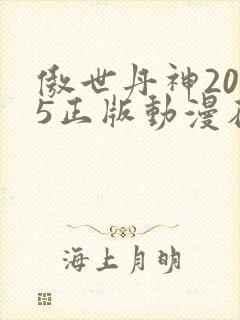 傲世丹神20
5正版動漫在
海上月明